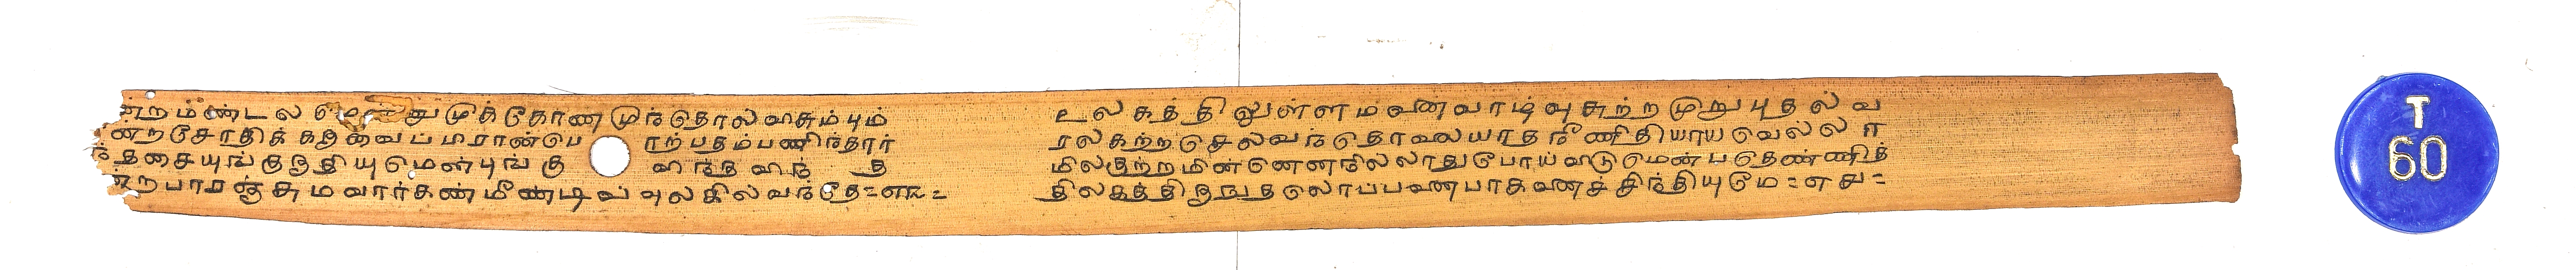 ன்றமண்டல முக்கோணமுந்தொலவசும்பும்
ன்றசோதிக் கதவைப்பிரான்பெ ாற்பதம்பணிந்தார்
ந்தசையுங்குருதியுமென்புங்கு விந்தவிந் த
ன்றபாரஞ்சுமவார்கண்மீண்டிவ்வுலகில்வந்தே
உலகத்திலுள்ளமனைவாழ்வுசுற்றமுறுபுதல்வ
ரலகற்றசெல்வந்தொலையாதநீணிதியாயவெல்லா
மிலகுற்றமின்னெனநில்லாதுபோய்விடுமென்பதெண்ணித்
திலகத்திருநுதலொப்பனைபாகனைச்சிந்தியுமே
T
60